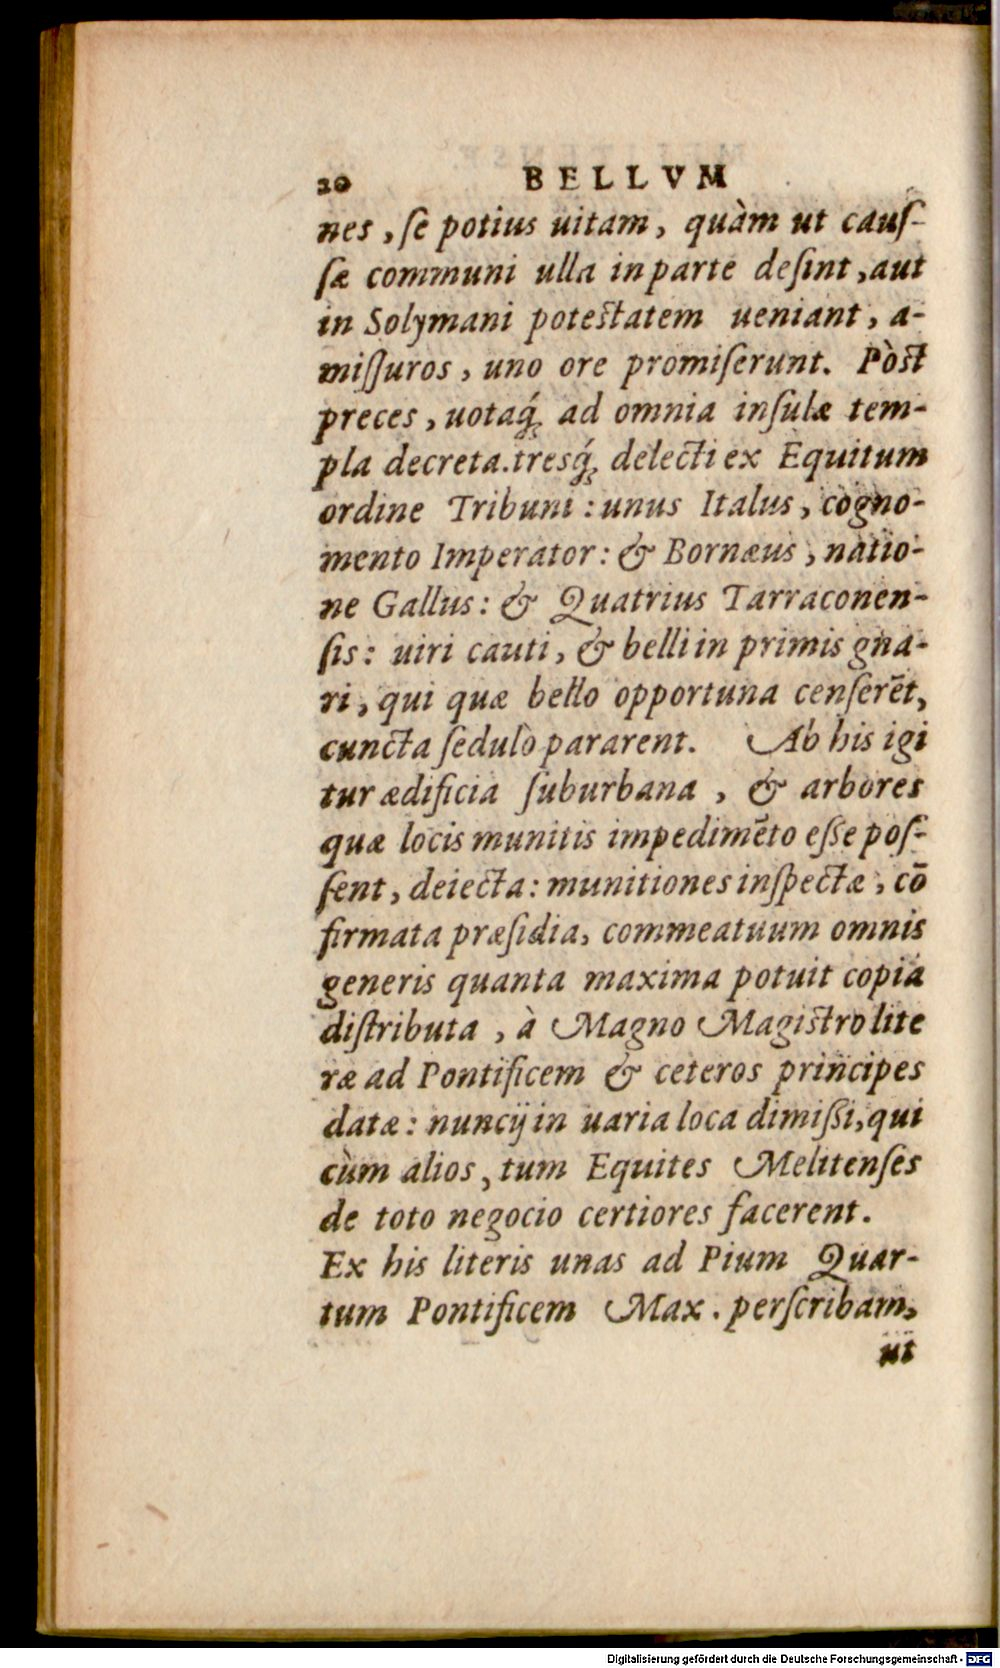 20 BELLVM
nes, ſe potius uitam, quàm ut cauſ-
ſæ communi ulla in parte deſint, aut
in Solymani potestatem ueniant, a-
miſſuros, uno ore promiſerunt. Pòst
preces, uotaq́; ad omnia inſulæ tem-
pla decreta. tresq́; delecti ex Equitum
ordine Tribuni: unus Italus, cogno-
mento Imperator: & Bornæus, natio-
ne Gallus: & Quatrius Tarraconen-
ſis: uiri cauti, & belli in primis gna-
ri, qui quæ bello opportuna cenſerēt,
cuncta ſedulò pararent. Ab his igi
tur ædificia ſuburbana, & arbores
quæ locis munitis impedimēto eſſe poſ-
ſent, deiecta: munitiones inſpectæ, cō
firmata præſidia, commeatuum omnis
generis quanta maxima potuit copia
diſtributa, à Magno Magistro lite
ræ ad Pontificem & ceteros principes
datæ: nuncij in uaria loca dimiſſi, qui
cùm alios, tum Equites Melitenſes
de toto negocio certiores facerent.
Ex his literis unas ad Pium Quar-
tum Pontificem Max. perſcribam,
ut
Digitalisierung gefördert durch die Deutsche Forschungsgemeinschaft - DFG